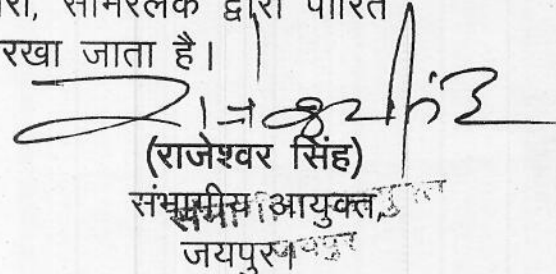 सामरलेक द्वारा पारित
रखा जाता है।
(राजेश्वर सिंह)
संभागीय आयुक्त,
जयपुर।